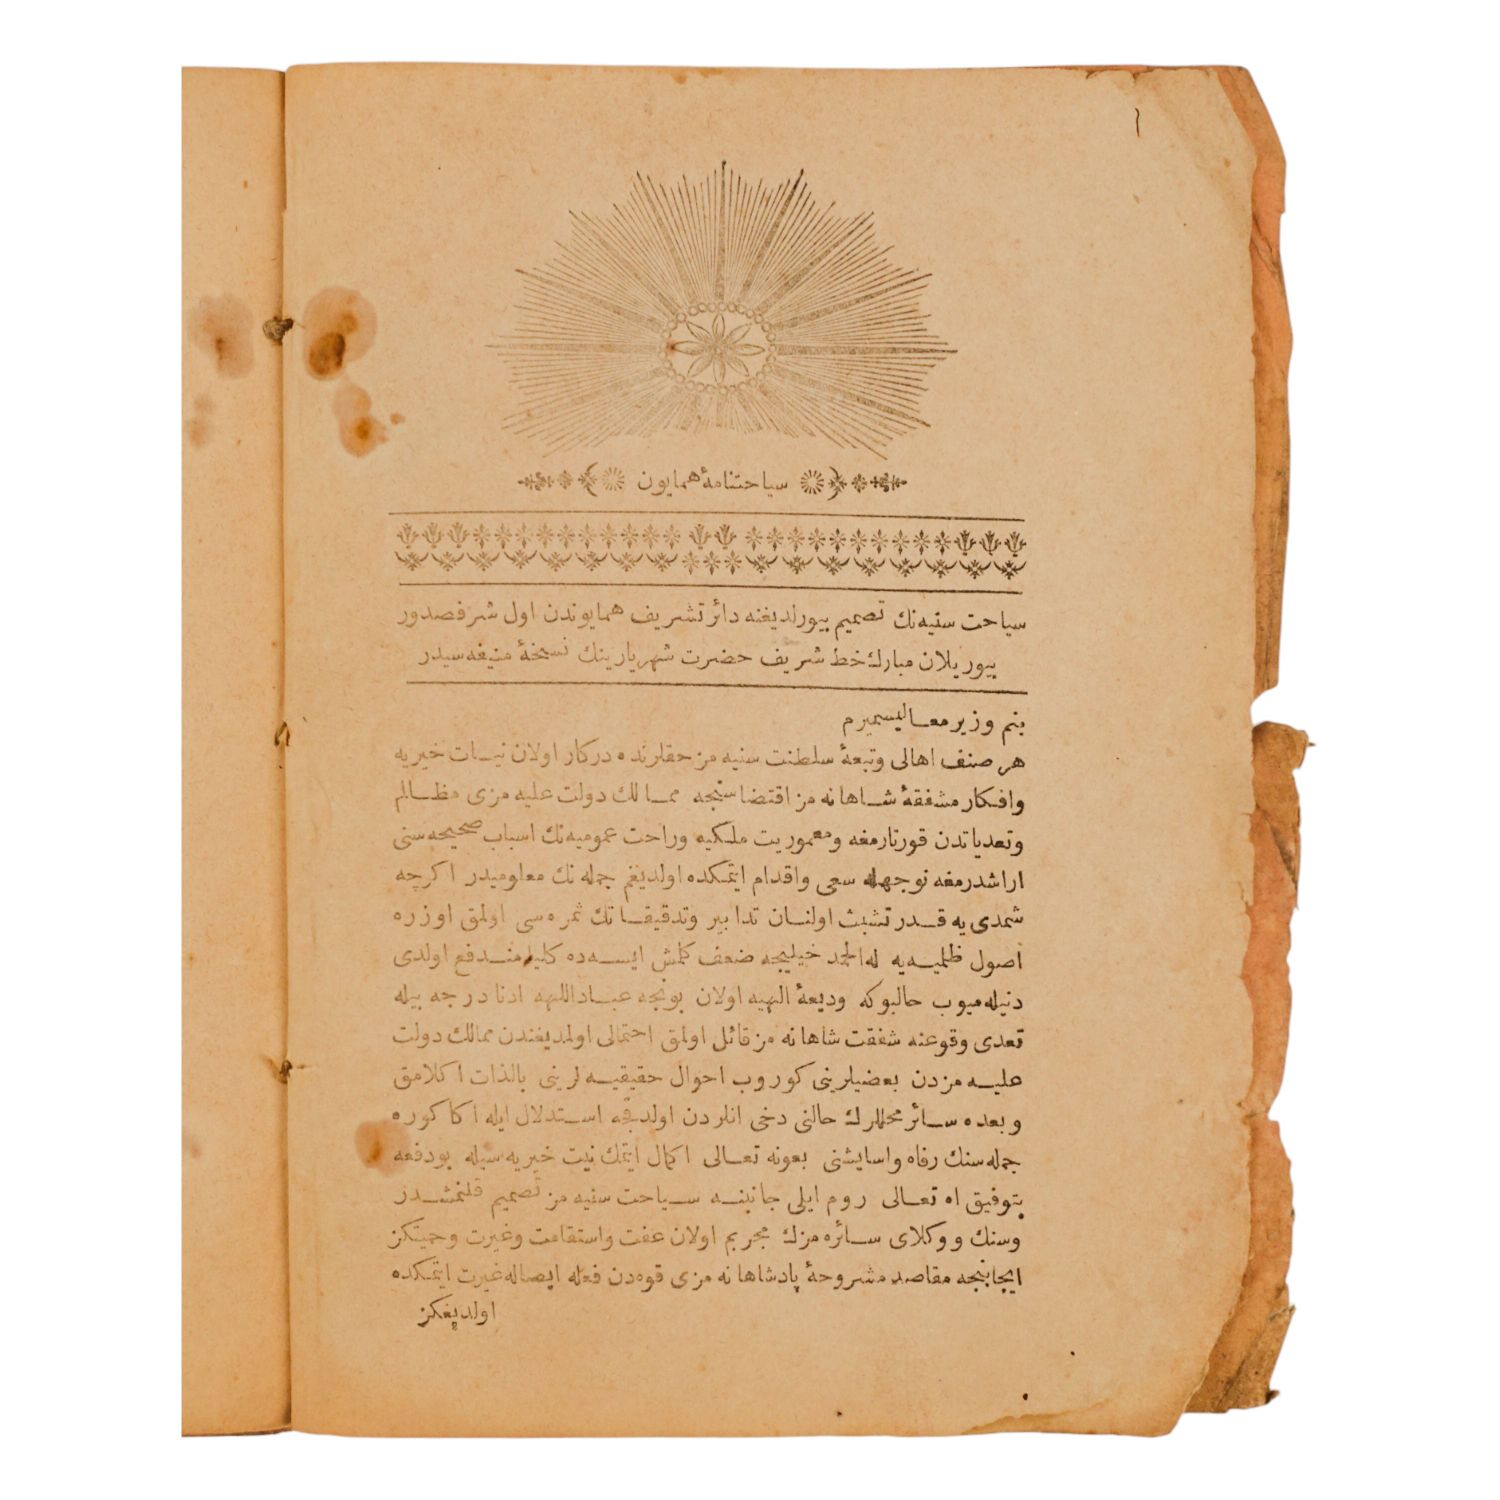 سیاحتنامهٔ همایون
سیاحت سنیه‌نك تصمیم بیورلدیغنه دائر تشریف همایوندن اول شرفصدور
بیوریلان مبارك خط شریف حضرت شهریارینك نسخهٔ منیفه سیدر
بنم وزیر معالیسمیرم
هر صنف اهالی و تبعهٔ سلطنت سنیه مز حقلرنده درکار اولان نیات خیریه
وافکار مشفقهٔ شاهانه مز اقتضاسنجه ممالك دولت علیه مزی مظالم
وتعدیاتدن قورتارمغه ومعموریت ملکیه وراحت عمومیه‌نك اسباب صحیحه سنی
اراشدرمغه نوجهله سعی واقدام ایتمکده اولدیغم جمله نك معلومیدر اکرچه
شمدی یه قدر تشبث اولنان تدابیر وتدقیقاتك ثمره سی اولمق اوزره
اصول ظلمیه یه له الحمد خیلیجه ضعف کلمش ایسه ده کلیا مندفع اولدی
دنیله میوب حالبوکه ودیعهٔ الهیه اولان بونجه عباداللهه ادنا درجه بیله
تعدی وقوعنه شفقت شاهانه مز قائل اولمق احتمالی اولمدیغندن ممالك دولت
علیه مزدن بعضیلرینی کوروب احوال حقیقیه لرینی بالذات اکلامق
وبعده سائر محللرك حالنی دخی انلردن اولدقجه استدلال ایله اکا کوره
جمله سنك رفاه واسایشنی بعونه تعالی اکمال ایتمك نیت خیریه سیله بودفعه
بتوفیق اه تعالی روم ایلی جانبنه سیاحت سنیه مز تصمیم قلنمشدر
وسنك و وکلای سائره مزك مجربم اولان عفت واستقامت وغیرت وحمیتکز
ایجابنجه مقاصد مشروحهٔ پادشاهانه مزی قوه‌دن فعله ایصاله غیرت ایتمکده
اولدیغکز